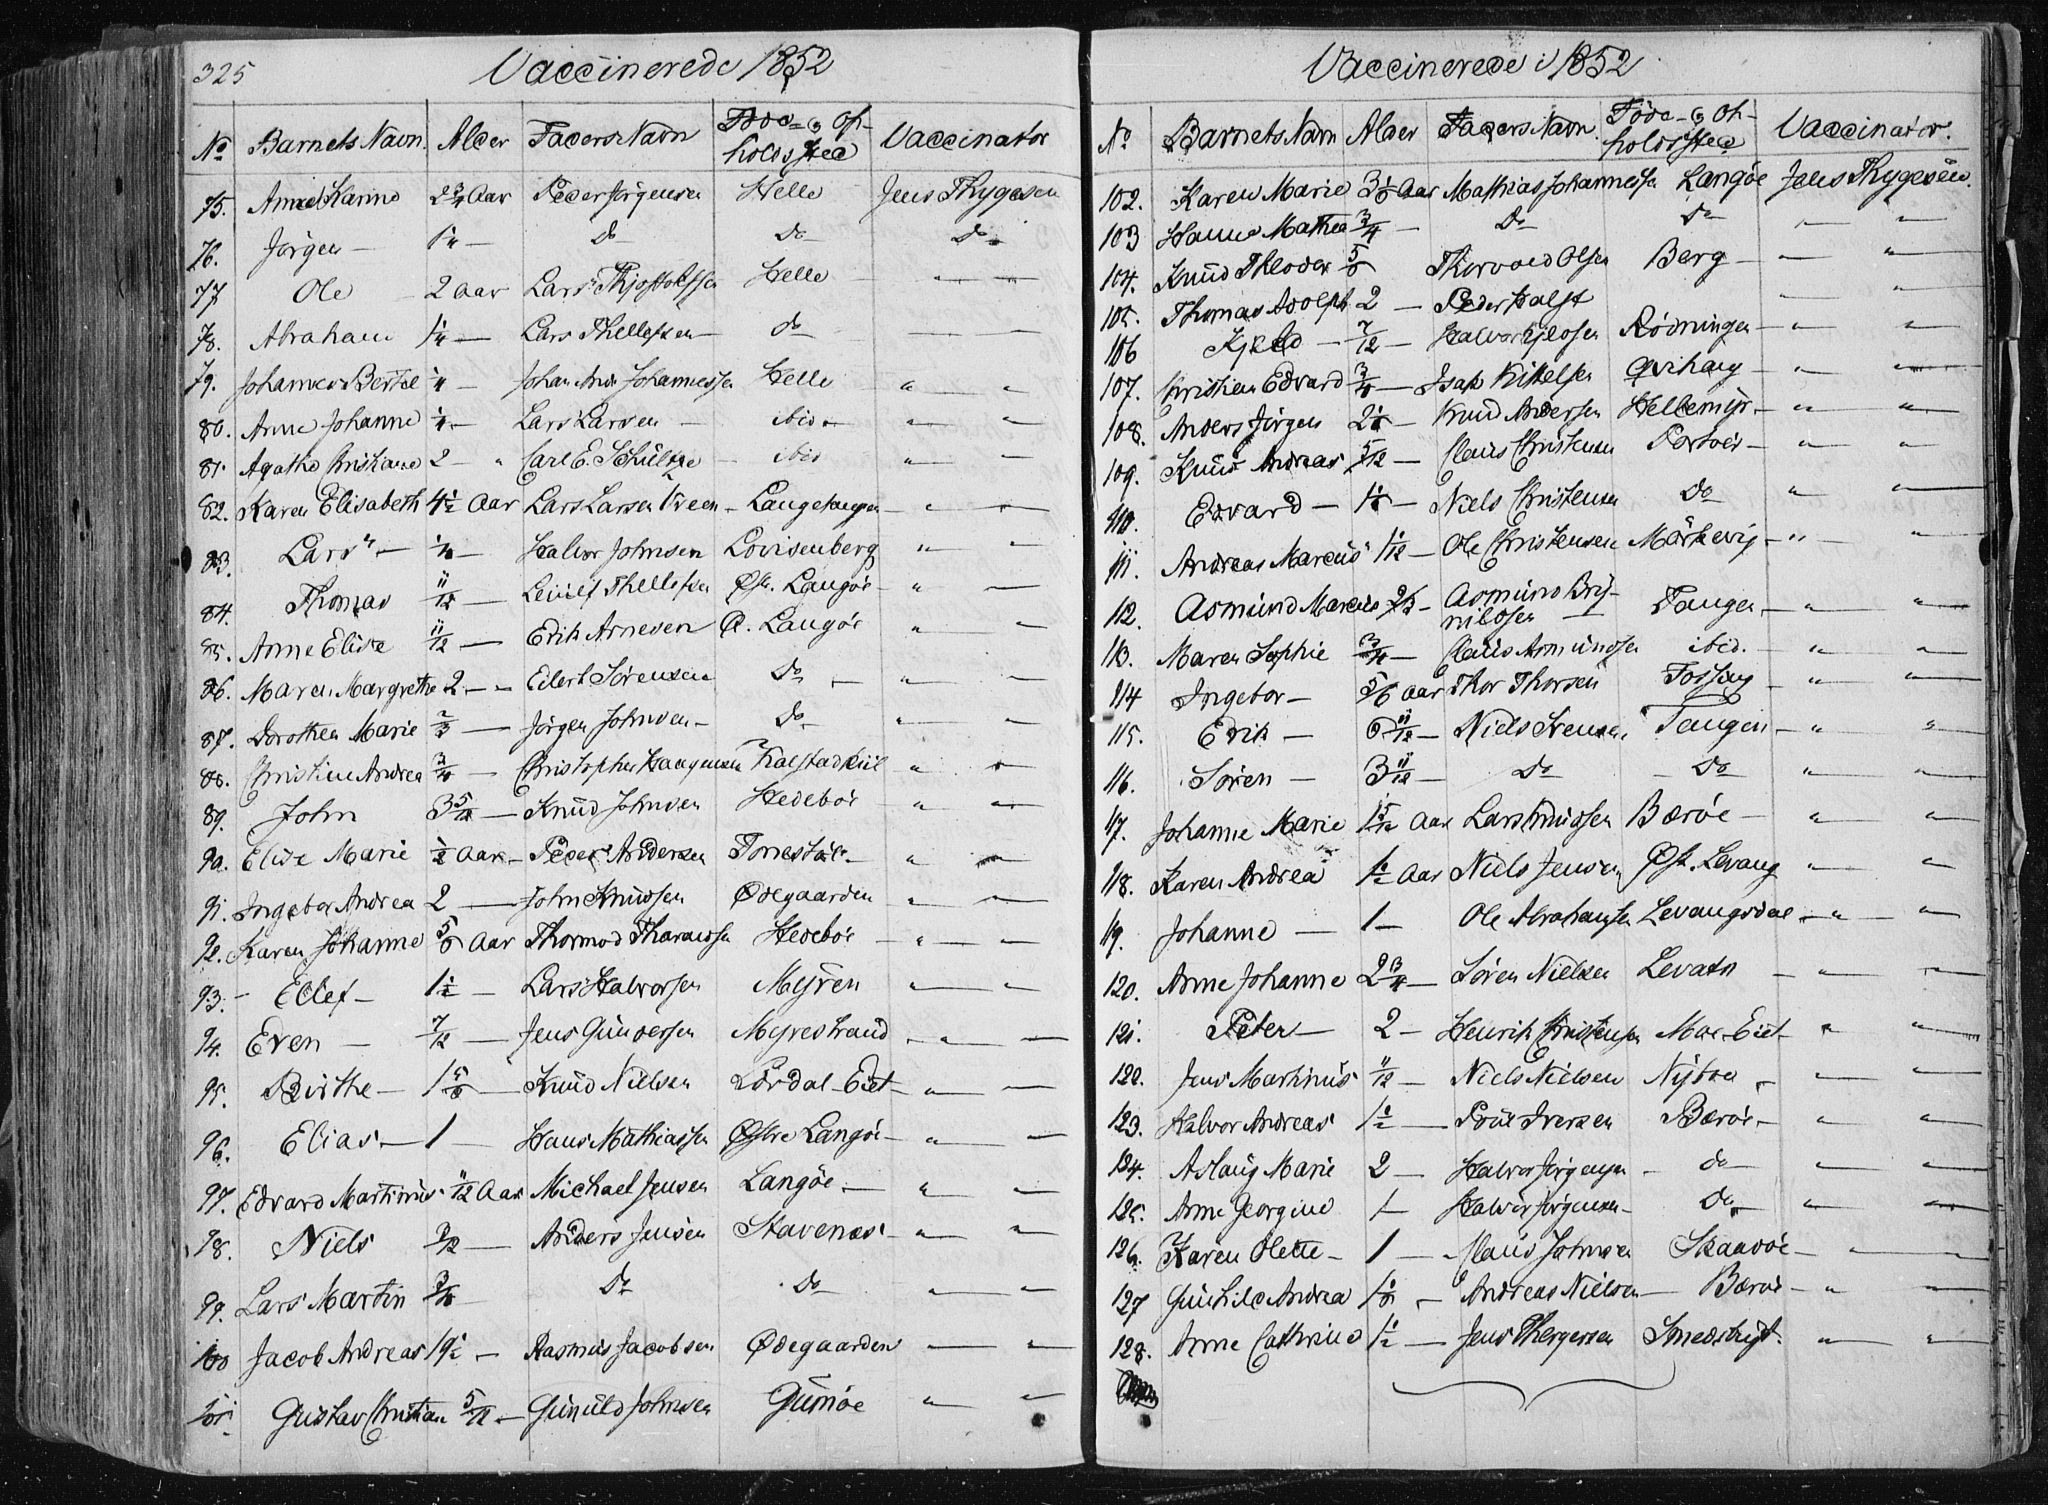 325 Vaccinerede 1852
No Barnets Navn. Alder Faders Navn Føde- & Op-
holdssted Vaccinator
75. Anne Karine 2 3/4 Aar Peder Jörgensen Helle Jens Thygesen
76. Jörgen — 1 1/4 — Do Do Do
77 Ole — 2 Aar Lars Thjostolfsen Helle — " —
78. Abraham 1 1/4 — Lars Thellefsen — do — — —
79. Johannes Bertel 1/4 — Johan Andr Johannessen Helle — " — "
80. Anne Johanne 1/4 — Lars Larsen — ibid. — " — "
81. Agathe Christiane 2 — " Carl E. Schültze — ibid " — "
82. Karen Elisabeth 4 1/2 Aar Lars Larsen — Langetangen — " —
83. Lars — Halvor Johnsen Lovisenberg " — "
84. Thomas 11/12 — Leiulf Thellefsen Østr. Langöe — " —
85. Anne Elise 11/12 — Erik Arnesen Ø. Langöe " — "
86. Maren Margrethe 2 — " Eilert Sörensen Do — " —
87. Dorothea Marie 2/3 — Jörgen Johnsen — Do — " —
88. Christine Andrea 3/4 — Christopher Haagensen Kalstadkiil " — "
89. John 3 5/12 — Knud Johnsen Hedeböe " — "
90. Elise Marie 1/2 Aar — Peder Andersen " — "
91. Ingebor Andrea 2 — John Knudsen Ødegaarden " — "
92. Karen Johanne 5/6 Aar Thormod Tharaldsen Hedeböe — " —
93. — Ellef — 1 1/2 — Lars Halvorsen Myren " — "
94. Even — 7/12 — Jens Gundersen Myrestrand — " —
95. Birthe — 1 5/6 — Knud Nielsen Lördal-Eiet — " —
96. Elias — 1 — Hans Mathiassen Østre Langöe — " —
97. Edvard Martinus 11/12 Aar Michael Jensen Langöe. — " —
98. Niels — Anders Jensen Stavenæs — " — "
99. Lars Martin 3/4 Do Do " — "
100 Jacob Andreas 19 1/2 — Rasmus Jacobsen Ødegaarden — —
101. Gustav Christian 5/12 — Gunuld Johnsen Gumöe " — "
Vaccinerede i 1852
No Barnets Navn Alder Faders Navn. Føde- & Op-
holdssted Vaccinator.
102. Karen Marie Aar Mathias Johannessen Langöe Jens Thygesen.
103 Hanne Mathea 3/4 — Do Do " — "
104. Knud Theodor 5/6 Thorvald Olsen Berg — " — "
105. Thomas Adolph 2 — Peder Kalst " — "
106 Kjeld — 7/12 — Halvor Kjeldsen Rödningen — " — "
107. Christian Edvard 3/4 — Isak Kittelsen — " —
108. Anders Jörgen — Knud Andersen Hellemyr. — " — "
109. Knud Andreas 5/12 — Claus Christensen — " — "
110. Edvard — — Niels Christensen Do " — "
111. Andreas Marcus 1 1/12 — Ole Christensen Mörkevig — " — "
112. Asmund Marcus — Asmund Bry-
nildsen — Tangen — " — "
113. Maren Sophie 3/4 — Claus Asmundsen ibid. — " — "
114 Ingebor — 5/6 Aar Thor Thorsen Fossing — " — "
115. Erik — 6 11/12 — Niels Svensen. Tangen — " — "
116. Sören — 3 11/12 — Do — Do " — "
117. Johanne Marie 1 5/12 Aar Lars Knudsen Bæröe — " — "
118. Karen Andrea 1 1/2 Aar Niels Jensen Øst. Levang " — "
119. Johanne — 1 — Ole Abrahamsen Levangsdal — " — "
120. Anne Johanne 2 3/4 — Sören Nielsen — " — "
121. Peter — 2 — Henrik Christensen Moe-Eiet — " — "
122. Jens Martinus 11/12 — Niels Nielsen " — "
123. Halvor Andreas 1 1/2 — Poul Iversen Bæröe — " — "
124. Aslaug Marie 2 — Halvor Jörgensen — do — " — "
125. Anne Georgine 1 — Halvor Jörgensen — Do " — "
126. Karen Olette — 1 — Claus Johnsen Skaadöe — " — "
127 Gunhild Andrea — Andreas Nielsen — Bæröe — " — "
128. Anne Cathrine 1 1/2 — Jens Thergersen Smedsbugt. " — "